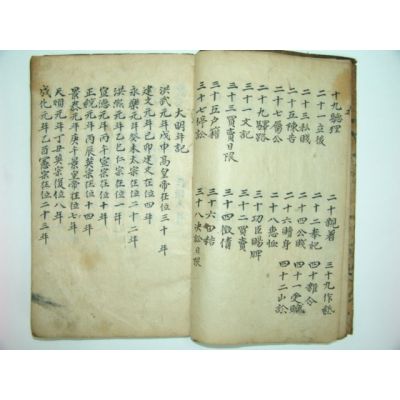 十九聽理 二十親着 三十九作紙
二十一立後 二十二奉祀 四十雜令
二十三私賤 二十四公賤 四十一受贓
二十五陳告 二十六贖身 四十二山訟
二十七屬公 二十八惠恤
二十九驛路 三十功臣賜牌
三十一文記 三十二買賣
三十三買賣日限 三十四徵債
三十五戶籍 三十六結
三十七停訟 三十八決訟日限
大明年記
洪武元年戊申高皇帝在位三十年
建文元年己卯建文在位四年
永樂元年癸未太宗在位二十二年
洪熙元年乙巳仁宗在位一年
宣德元年丙午宣宗在位十年
正統元年丙辰英宗在位十四年
景泰元年庚午景皇帝在位七年
天順元年丁丑英宗復位八年
成化元年乙酉憲宗在位二十三年